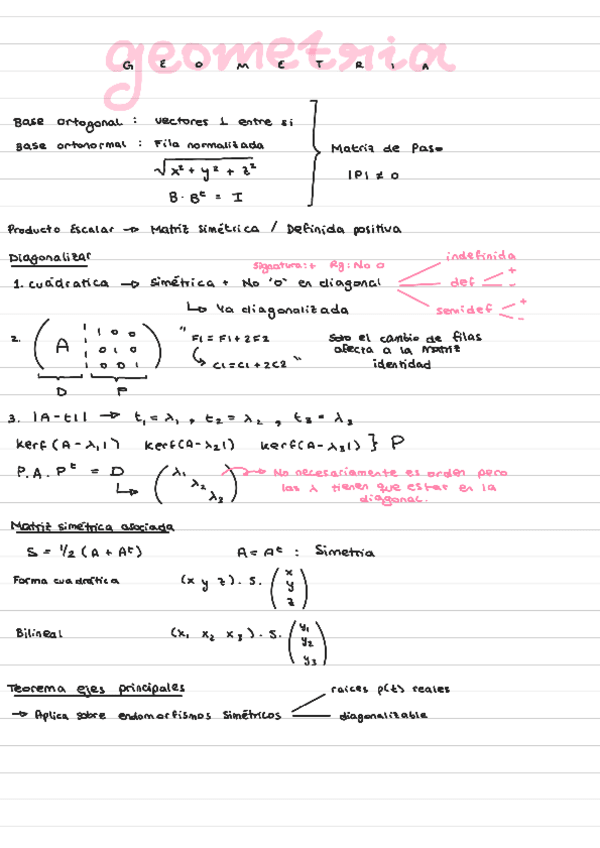 geometria
GEOMETRIA
Base ortogonal : vectores ⊥ entre si
Base ortonormal : Fila normalizada
√x² + y² + z²
B · Bᵗ = I
Matriz de Paso
|P| ≠ 0
Producto Escalar → Matriz simétrica / Definida positiva
Diagonalizar
signatura:+ Rg: No 0
1. cuadratica → simétrica + No "0" en diagonal
indefinida
def + -
semidef + -
↳ Ya diagonalizada
2. ( A | 1 0 0
0 1 0
0 0 1 )
D P
" F1 = F1 + 2F2
↳ C1 = C1 + 2C2 "
Solo el cambio de filas
afecta a la matriz
identidad
3. |A - tI| → t₁ = λ₁ , t₂ = λ₂ , t₃ = λ₃
Kerf (A - λ₁I) Kerf(A - λ₂I) Kerf(A - λ₃I) } P
P. A. Pᵗ = D
↳ ( λ₁ λ₂ λ₃ )
→ No necesariamente es orden pero
las λ tienen que estar en la
diagonal.
Matriz simétrica asociada
S = ½ (A + Aᵗ) A = Aᵗ : Simetria
Forma cuadrática (x y z) . S. ( x y z )
Bilineal (x₁ x₂ x₃) . S. ( y₁ y₂ y₃ )
Teorema ejes principales
→ Aplica sobre endomorfismos simétricos
raíces p(t) reales
diagonalizable